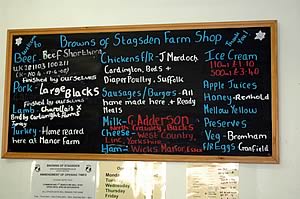 Welcome to
Browns of Stagsden Farm Shop
Thank You!
Beef - Beef Shorthorn
finished by ourselves
Pork - Large Blacks
finished by ourselves
Lamb - Charollais X
Bred by Cartwright Farms
Turkey - Home reared
here at Manor Farm
Chickens F/R - J Murdoch
Cardington, Beds +
Diaper Poultry, Suffolk
Sausages/Burgers - All
home made here + Ready
Meals
Milk - G. Adderson
North Crawley, Bucks
Cheese - West Country
Linc, Yorkshire
Ham - Wicks Manor Essex
Ice Cream
110ml £1.10
500ml £3.40
Apple Juices
Honey - Renhold
Mellow Yellow
Preserves
Veg - Bromham
F/R Eggs Cranfield
BROWNS OF STAGSDEN
Monday
Tuesday
Wednesday
Thursday
Friday